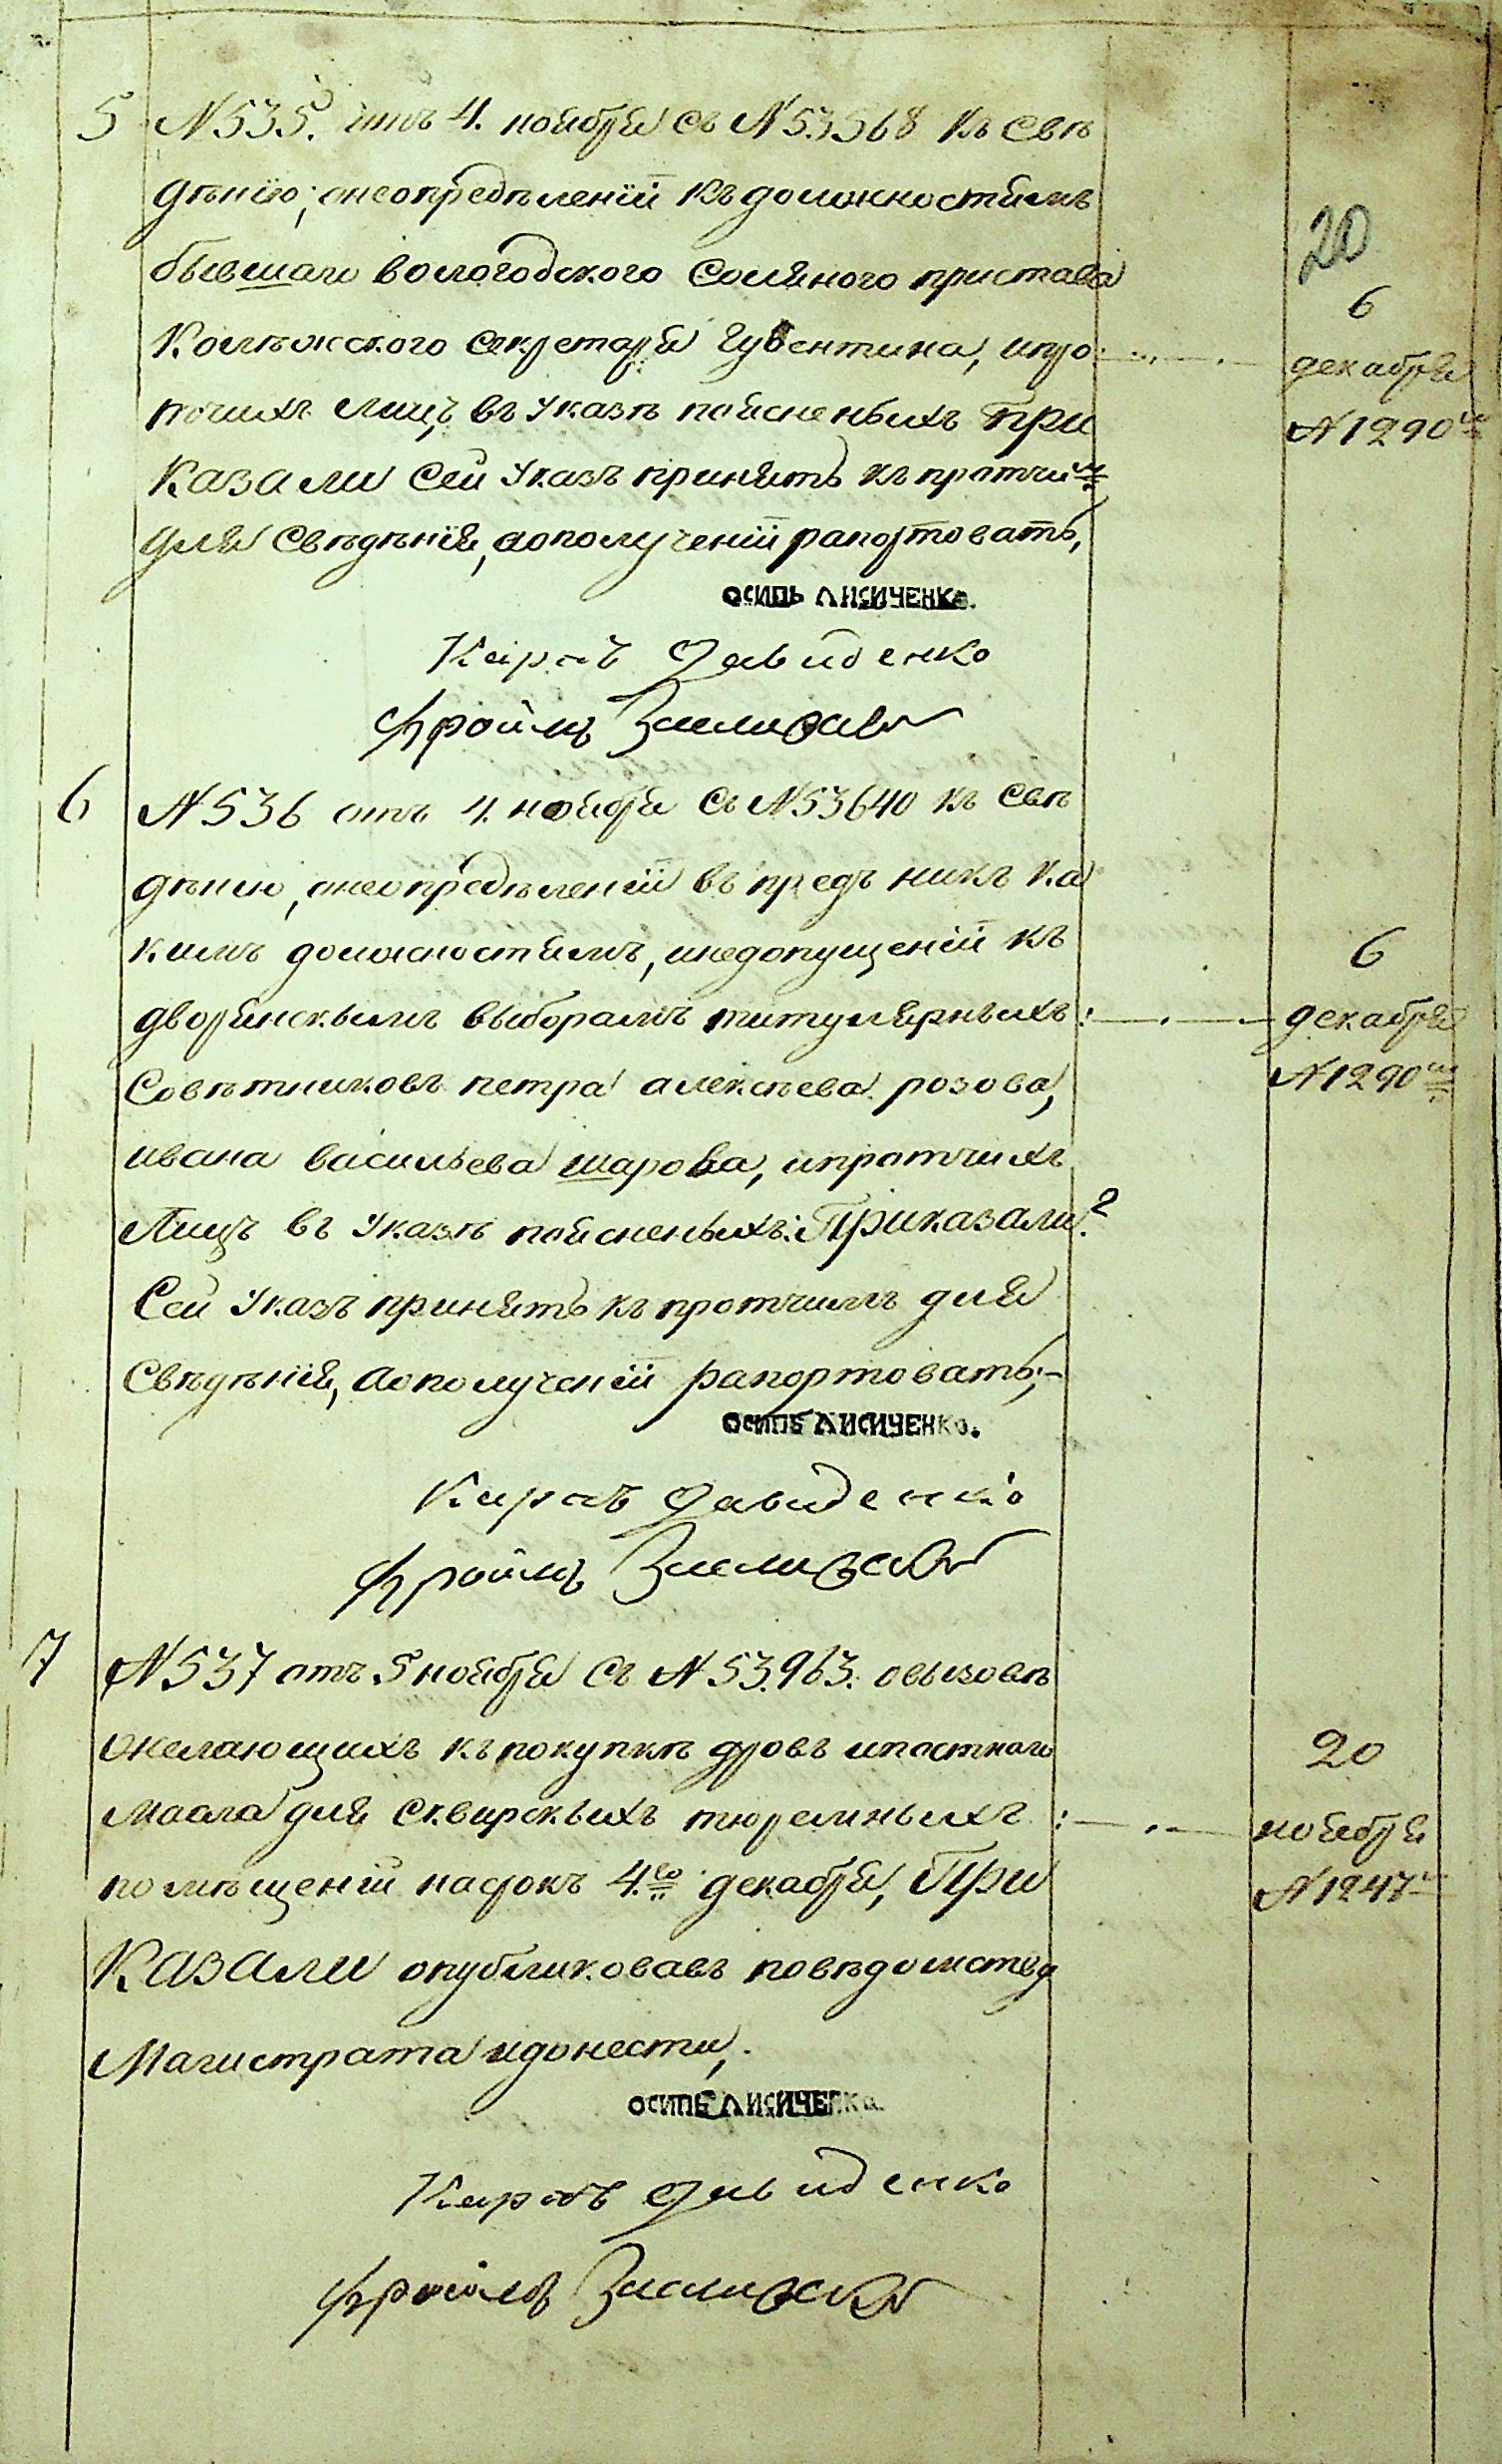 20
5 N 535. отъ 4. ноября съ N 53568 къ свѣ
дѣнію, онеопредѣленіи къ должностямъ
бывшаго вологодского солянаго пристава
Колѣжского секретаря Губентина, ипро
тчихъ лицъ, въ указѣ поясненыхъ При
казали сей указъ принять къ протчим
для свѣдѣнія, аополученіи рапортовать,
6
декабря
N 1290
ОСИПЬ ЛИСИЧЕНКО.
Карпъ Давиденко
Фроимъ
6 N 536 отъ 4. ноября съ N 53640 къ свѣ
дѣнію, онеопредѣленіи въ предъ никъ ка
кимъ должностямъ, инедопущеніи къ
дворянскымъ выборамъ титулярныхъ
Совѣтниковъ петра алексѣева розова,
ивана васильева шарова, ипротчихъ
Лицъ въ указѣ поясненыхъ: Приказали?
Сей указъ принять къ протчимъ для
свѣдѣнія, аополученіи рапортовать;-
6
декабря
N 1290
ОСИПЬ ЛИСИЧЕНКО.
Карпъ Давиденко
Фроимъ
7 N 537 отъ 5 ноября съ N 53.963. овызовѣ
желающихъ къ покупкѣ дровъ ипостнаго
масла для сквирскыхъ тюремныхъ
помѣщеніи насрокъ 4.го декабря, При
казали опубликовавъ повѣдомству
Магистрата идонести,.
20
ноября
N 1247
ОСИПЬ ЛИСИЧЕНКО.
Карпъ Давиденко
Фроимъ